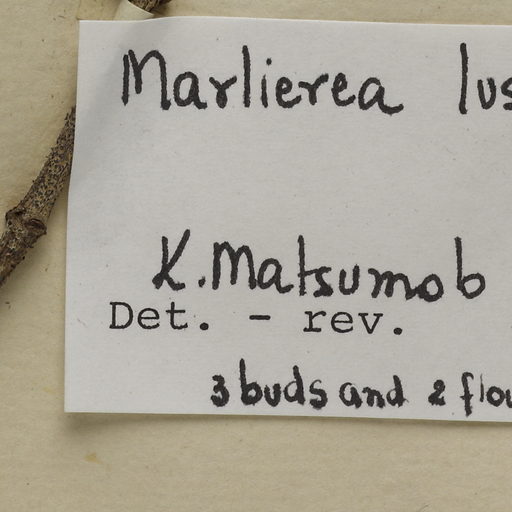 Marlierea lus
K. Matsumob
Det. - rev.
3 buds and 2 flow